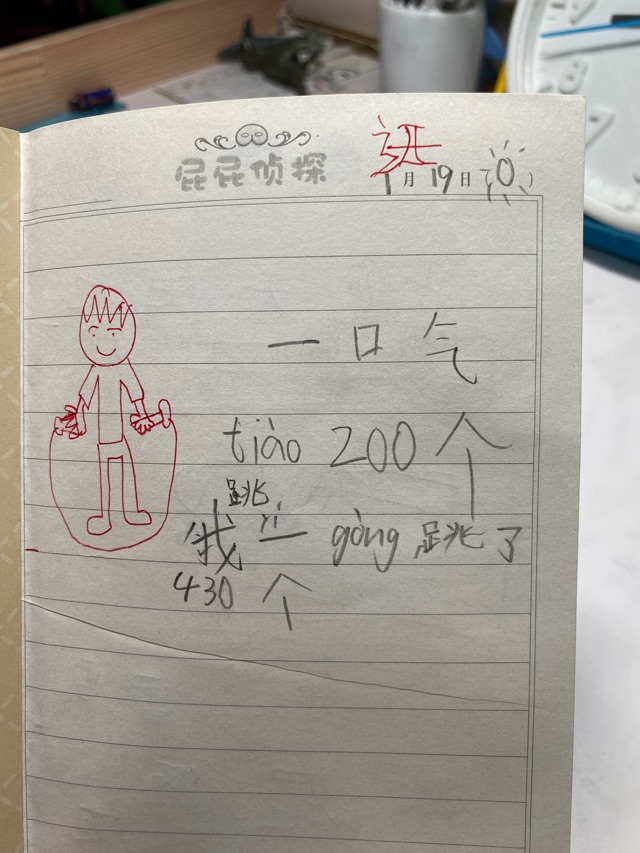 屁屁侦探
1月19日( )
一口气
tiào 200个
跳
我一 gòng 跳了
430个